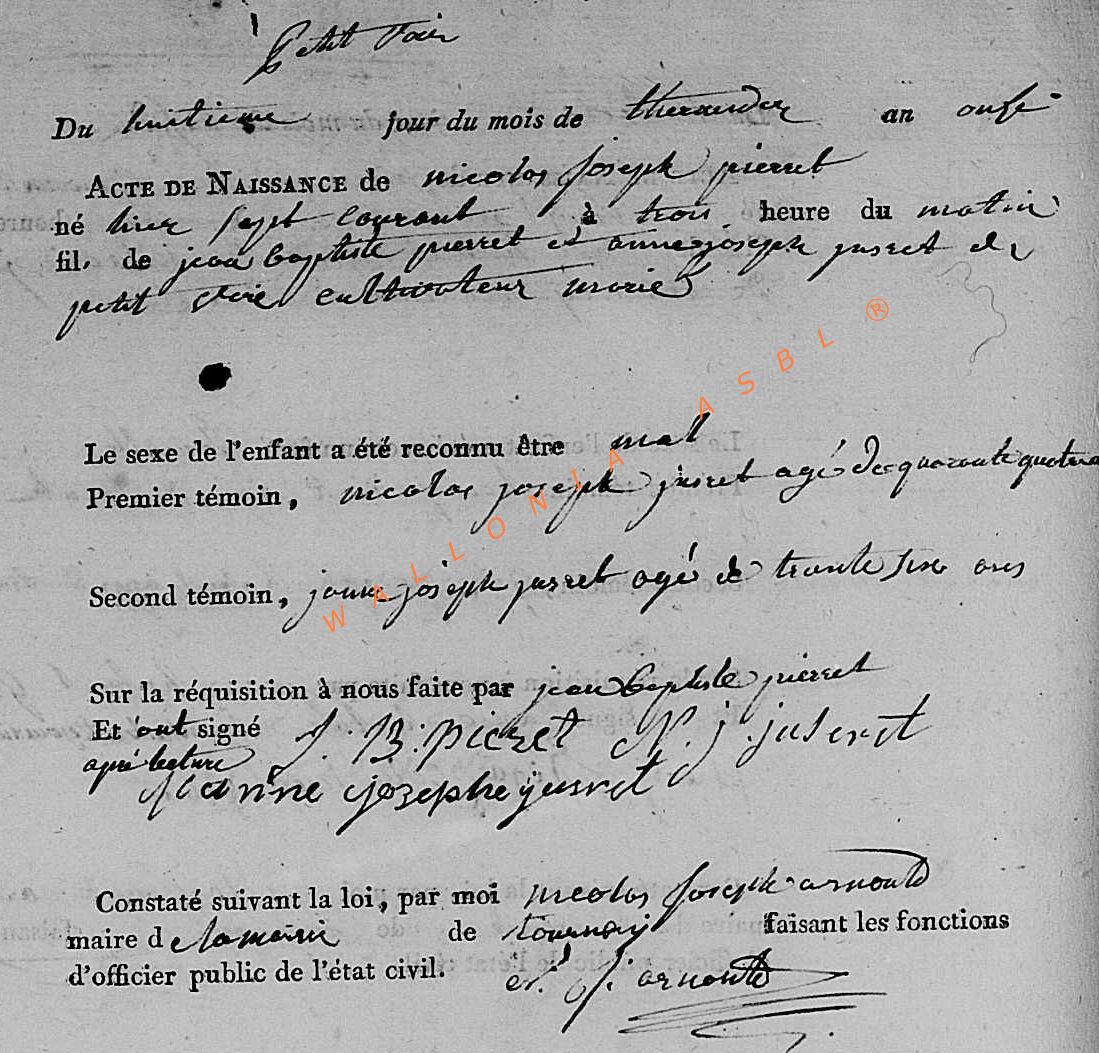 Petit Voir
Du huitieme jour du mois de thermidor an onse
ACTE DE NAISSANCE de nicolas joseph pierret
né hier sept courant à trois heure du matin
fil. de jean baptiste pierret et anne joseph jusret de
petit voir cultivateur marié
Le sexe de l'enfant a été reconnu être mal
Premier témoin, nicolas joseph jusret agé de quarante quatre
Second témoin, joseph jusret agé de trante six ans
Sur la réquisition à nous faite par jean baptiste pierret
Et ont signé J. B. pierret N. j. juseret
apré lecture
josephe jusret
Constaté suivant la loi, par moi nicolas joseph arnould
maire d e la mairie de tournay faisant les fonctions
d'officier public de l'état civil. N. J. arnould
WALLONIA ASBL ®